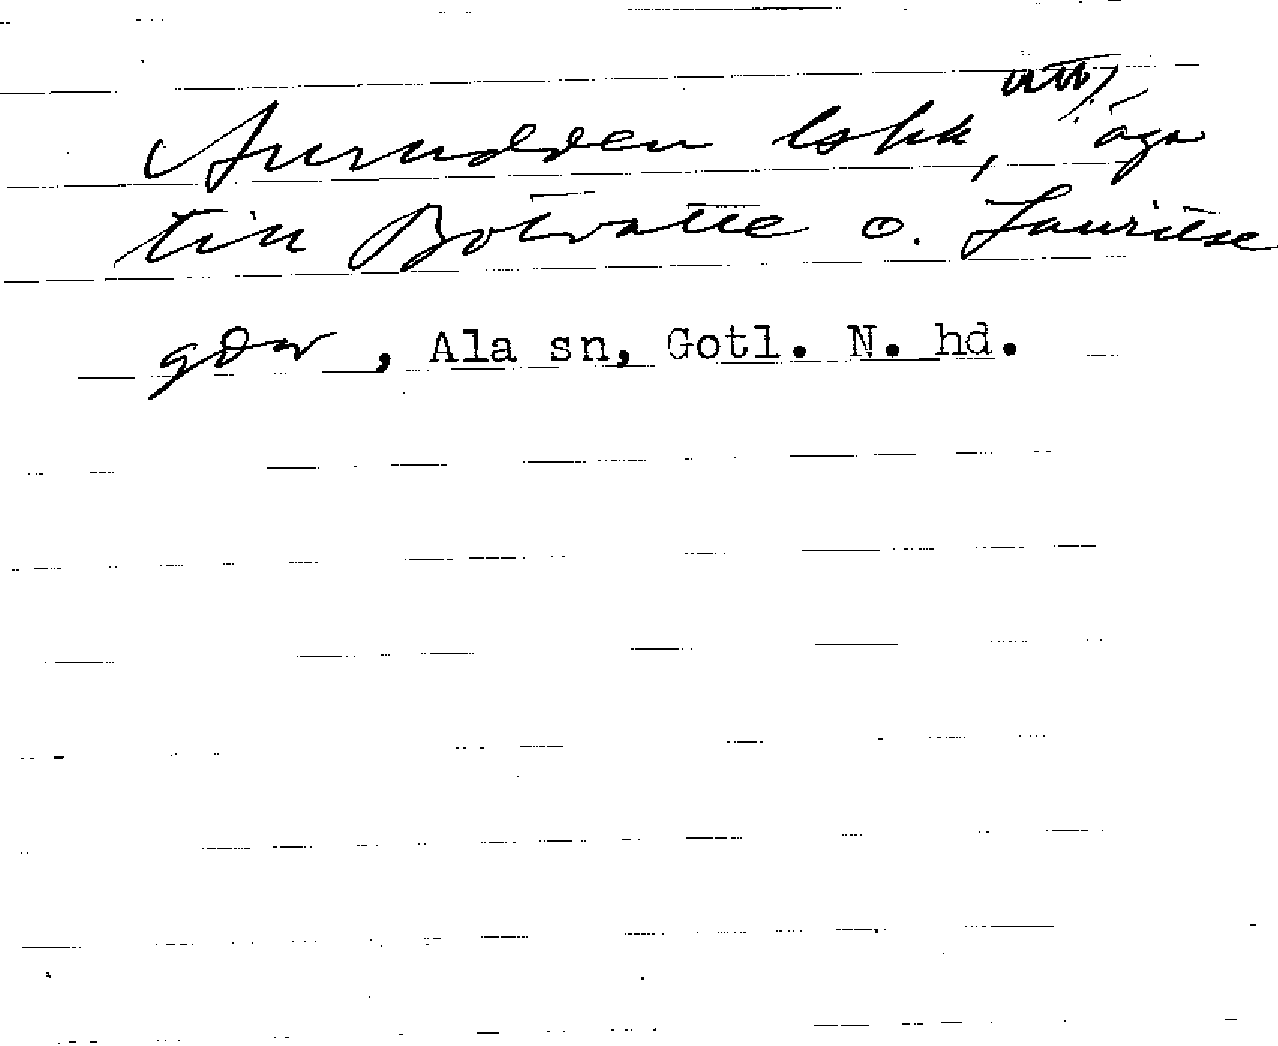 Aurudden lskk, utb, äga
till Botvatte o. Lauritse
gdar, Ala sn, Gotl. N. hd.